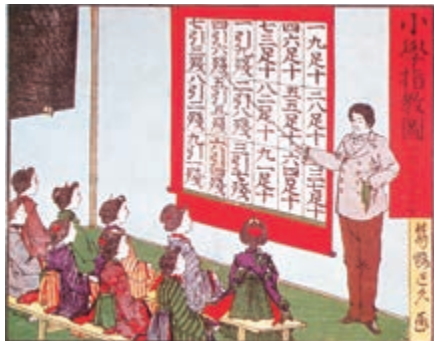 小學指教圖
一九足十 二八足十 三七足十
四六足十 五五足十 六四足十
七三足十 八二足十 九一足十
一引九殘 二引八殘 三引七殘
四引六殘 五引五殘 六引四殘
七引三殘 八引二殘 九引一殘